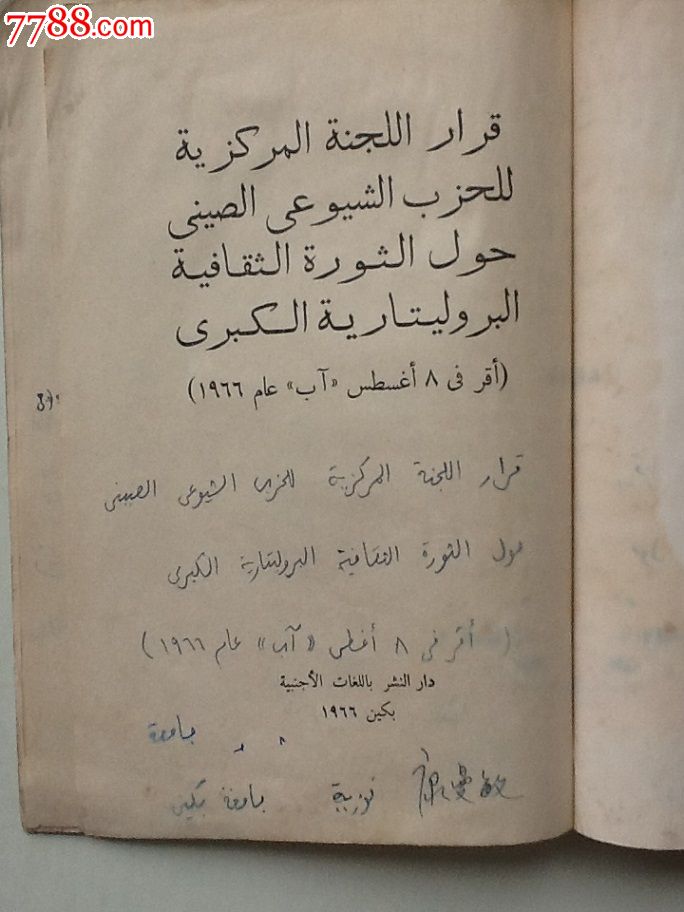 7788.com
قرار اللجنة المركزية
للحزب الشيوعى الصينى
حول الثورة الثقافية
البروليتارية الكبرى
(أقر فى ٨ أغسطس «آب» عام ١٩٦٦)
قرار اللجنة المركزية للحزب الشيوعى الصينى
حول الثورة الثقافية البروليتارية الكبرى
(أقر فى ٨ أغسطس «آب» عام ١٩٦٦)
دار النشر باللغات الأجنبية
بكين ١٩٦٦
جامعة
فوزية جامعة بكين